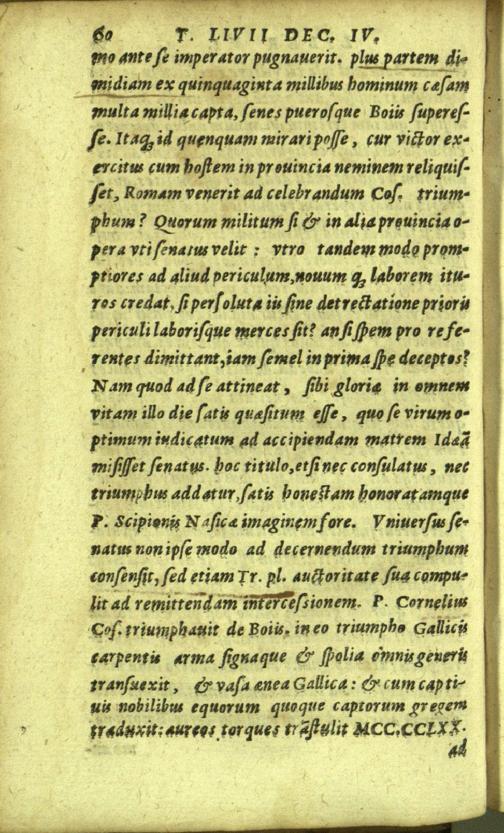 60 T. LIVII DEC. IV.
mo ante ſe imperator pugnauerit. plus partem di-
midiam ex quinquaginta millibus hominum cæſam
multa millia capta, ſenes pueroſque Boiis ſupereſ-
ſe. Itaq; id quenquam mirari poſſe, cur victor ex-
ercitus cum hoſtem in prouincia neminem reliquiſ-
ſet, Romam venerit ad celebrandum Coſ. trium-
phum? Quorum militum ſi & in alia prouincia o-
pera vti ſenatus velit: vtro tandem modo prom-
ptiores ad aliud periculum, nouum q; laborem itu-
ros credat, ſi perſoluta iis ſine detrectatione prioris
periculi laboriſque merces ſit? an ſi ſpem pro re fe-
rentes dimittant, iam ſemel in prima ſpe deceptos?
Nam quod ad ſe attineat, ſibi gloriæ in omnem
vitam illo die ſatis quæſitum eſſe, quo ſe virum o-
ptimum iudicatum ad accipiendam matrem Idæã
miſiſſet ſenatus. hoc titulo, etſi nec conſulatus, nec
triumphus addatur, ſatis honeſtam honoratamque
P. Scipionis Naſicæ imaginem fore. Vniuerſus ſe-
natus non ipſe modo ad decernendum triumphum
conſenſit, ſed etiam Tr. pl. auctoritate ſua compu-
lit ad remittendam interceſsionem. P. Cornelius
Coſ. triumphauit de Boiis. in eo triumpho Gallicis
carpentis arma ſignaque & ſpolia omnis generis
tranſuexit, & vaſa ænea Gallica: & cum capti-
uis nobilibus equorum quoque captorum gregem
traduxit: aureos torques trãſtulit MCC.CCLXX.
ad